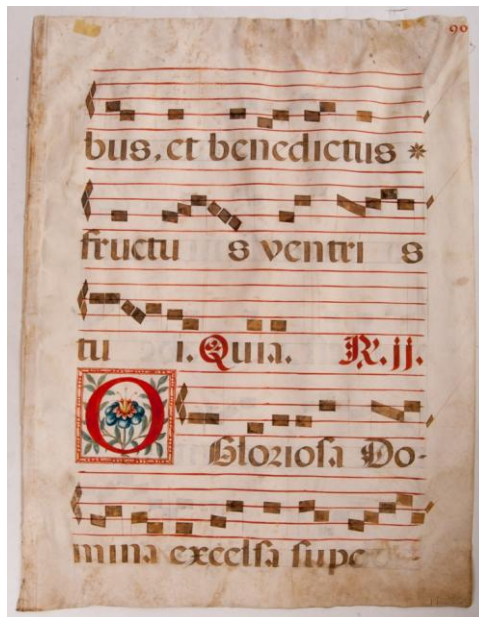 90
bus, et benedictus *
fructu s ventri s
tu i. Quia. R. jj.
O Gloriosa Do-
mina excelsa supe